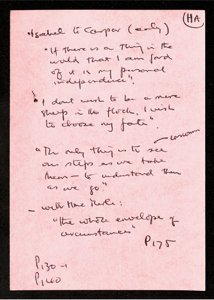 HA
Isabel to Caspar (early)
"If there is a thing in the
world that I am fond
of it is my personal
independence".
"I don't wish to be a mere
sheep in the flock. I wish
to choose my fate"
"The only thing is to see
our steps as we take
them — to understand them
as we go"
— with Mme Merle:
"the whole envelope of
circumstances"
P175
P130-1
P160